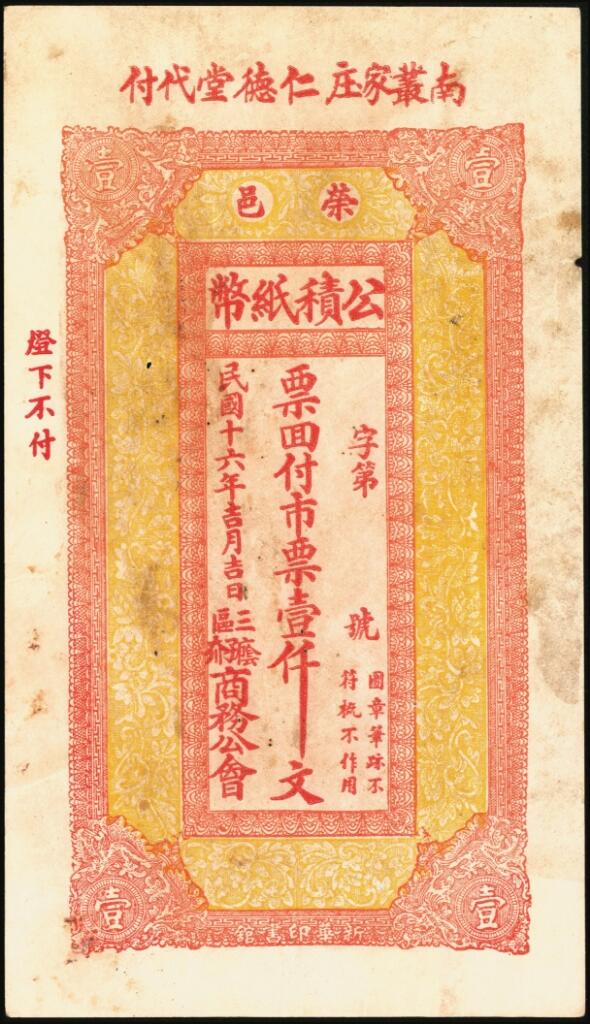 南叢家庄仁德堂代付
壹
壹
榮邑
公積紙幣
字第 號
圖章筆跡不
符概不作用
票回付市票壹仟文
民國十六年吉月吉日
三區
商務公會
燈下不付
壹
壹
新華印書館